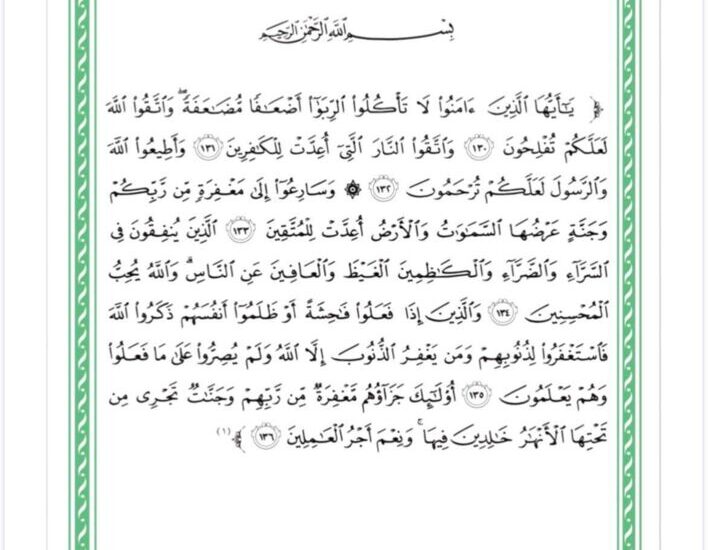 بِسْمِ اللَّهِ الرَّحْمَٰنِ الرَّحِيمِ
﴿ يَٰٓأَيُّهَا الَّذِينَ ءَامَنُوا لَا تَأْكُلُوا الرِّبَوٰٓا أَضْعَٰفًا مُّضَٰعَفَةً ۖ وَاتَّقُوا اللَّهَ
لَعَلَّكُمْ تُفْلِحُونَ ١٣٠ وَاتَّقُوا النَّارَ الَّتِىٓ أُعِدَّتْ لِلْكَٰفِرِينَ ١٣١ وَأَطِيعُوا اللَّهَ
وَالرَّسُولَ لَعَلَّكُمْ تُرْحَمُونَ ١٣٢ ۞ وَسَارِعُوٓا إِلَىٰ مَغْفِرَةٍ مِّن رَّبِّكُمْ
وَجَنَّةٍ عَرْضُهَا السَّمَٰوَٰتُ وَالْأَرْضُ أُعِدَّتْ لِلْمُتَّقِينَ ١٣٣ الَّذِينَ يُنفِقُونَ فِى
السَّرَّآءِ وَالضَّرَّآءِ وَالْكَٰظِمِينَ الْغَيْظَ وَالْعَافِينَ عَنِ النَّاسِ ۗ وَاللَّهُ يُحِبُّ
الْمُحْسِنِينَ ١٣٤ وَالَّذِينَ إِذَا فَعَلُوا فَٰحِشَةً أَوْ ظَلَمُوٓا أَنفُسَهُمْ ذَكَرُوا اللَّهَ
فَاسْتَغْفَرُوا لِذُنُوبِهِمْ وَمَن يَغْفِرُ الذُّنُوبَ إِلَّا اللَّهُ وَلَمْ يُصِرُّوا عَلَىٰ مَا فَعَلُوا
وَهُمْ يَعْلَمُونَ ١٣٥ أُو۟لَٰٓئِكَ جَزَآؤُهُم مَّغْفِرَةٌ مِّن رَّبِّهِمْ وَجَنَّٰتٌ تَجْرِى مِن
تَحْتِهَا الْأَنْهَٰرُ خَٰلِدِينَ فِيهَا ۚ وَنِعْمَ أَجْرُ الْعَٰمِلِينَ ١٣٦ ﴾ (١)